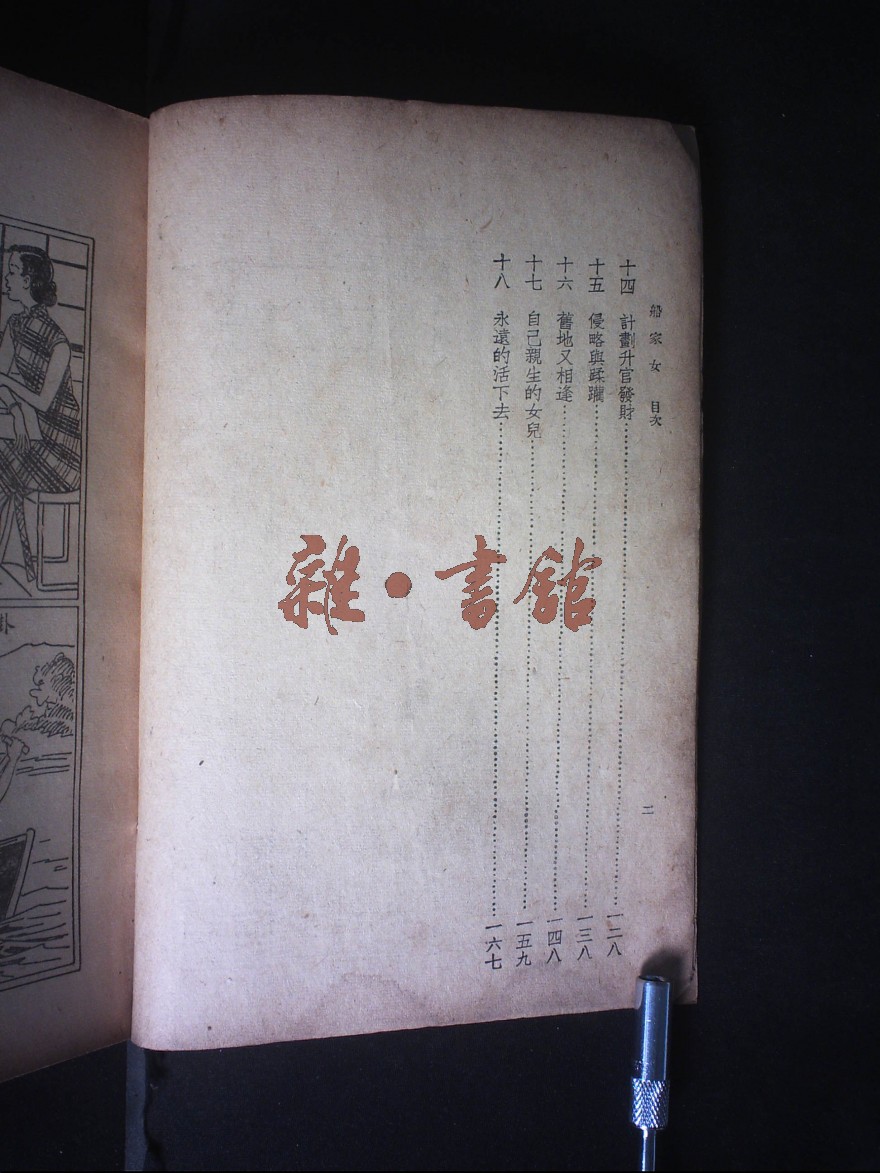 船家女 目次
二
十四 計劃升官發財 一二八
十五 侵略與蹂躪 一三八
十六 舊地又相逢 一四八
十七 自己親生的女兒 一五九
十八 永遠的活下去 一六七
雜·書館
卦